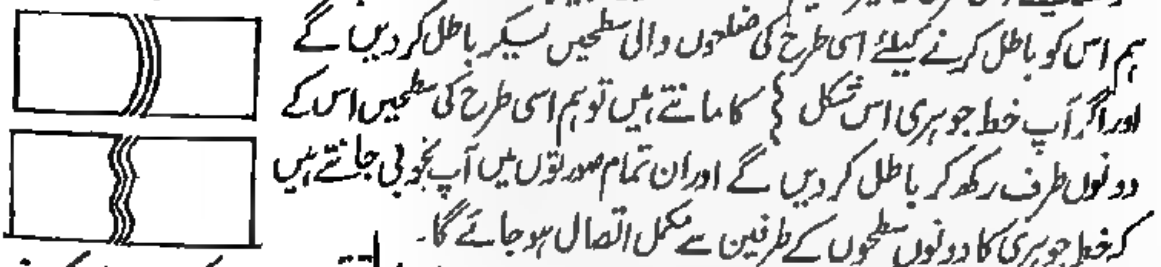 ہم اس کو باطل کرنے کیلئے اسی طرح کی ضلعوں والی سطحیں لیکر باطل کر دیں گے
اور اگر آپ خط جوہری اس شکل { کا مانتے ہیں تو ہم اسی طرح کی سطحیں اس کے
دونوں طرف رکھ کر باطل کر دیں گے اور ان تمام صورتوں میں آپ بخوبی جانتے ہیں
کہ خط جوہری کا دونوں سطحوں کے طرفین سے مکمل اتصال ہو جائے گا۔